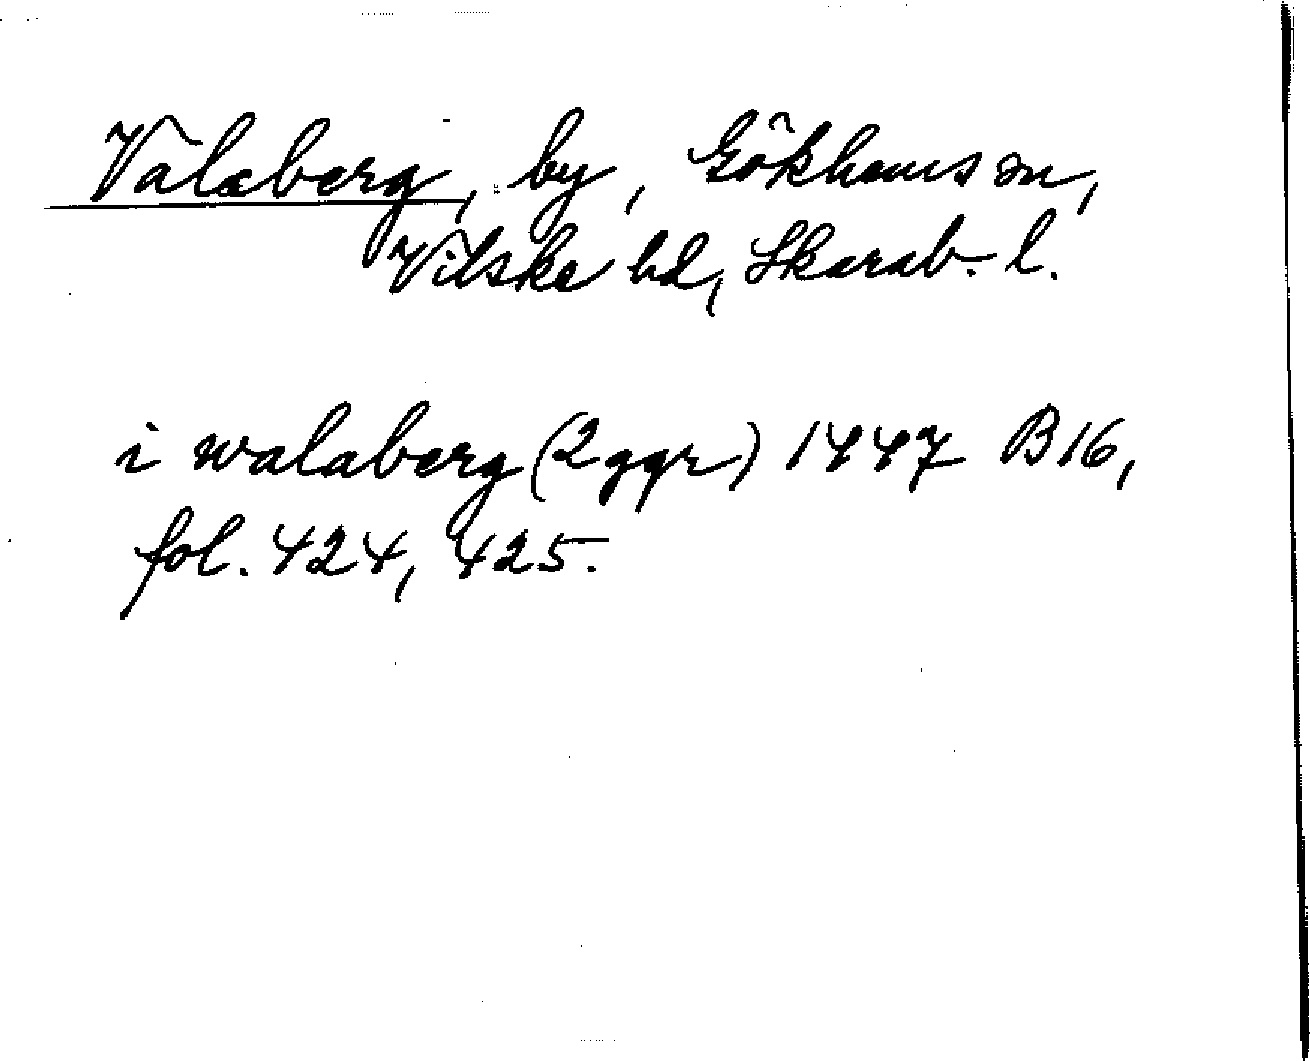 Valaberg, by, Gökhems sn,
Vilske hd, Skarab. l.
i walaberg (2 ggr) 1447 B16,
fol. 424, 425.